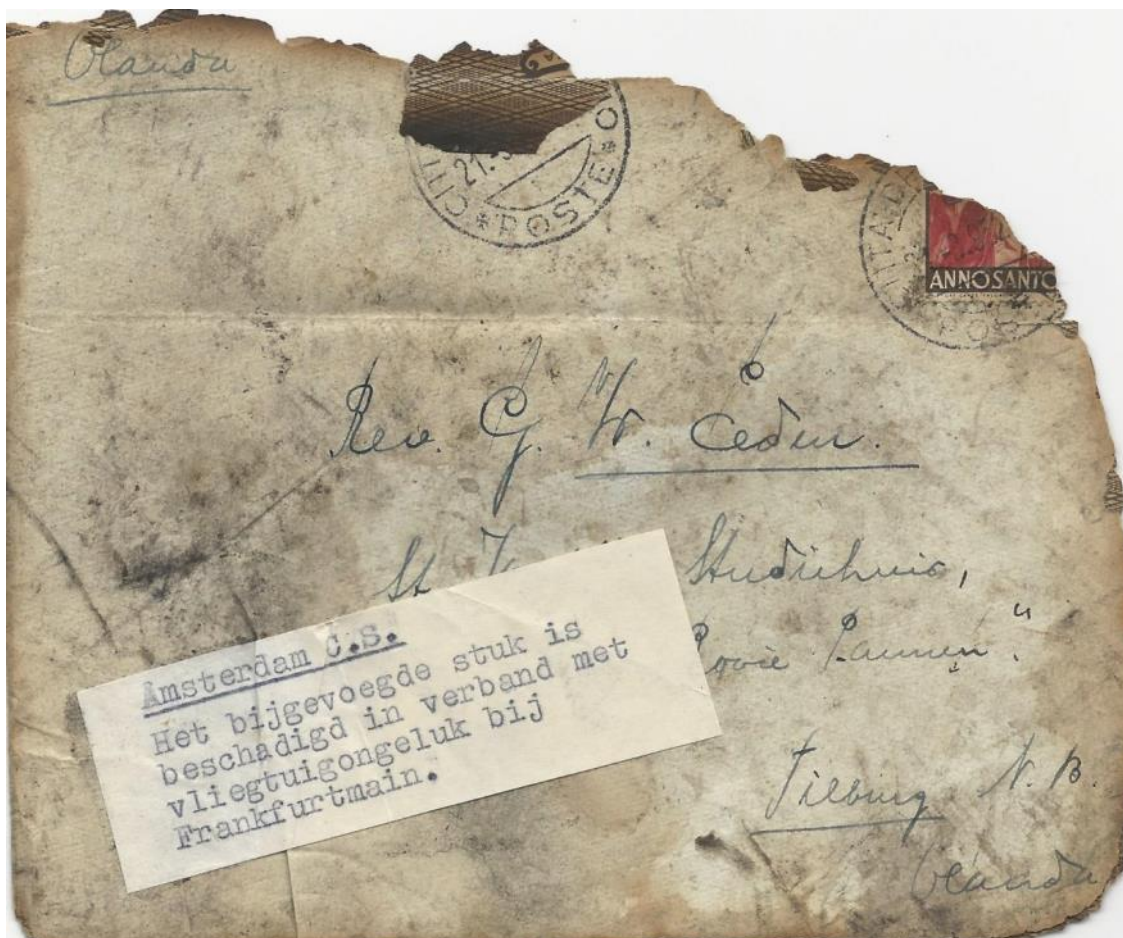 Olanda
CITT
21.
*POSTE*
ANNO SANTO
Rev. G. W. Ceduu.
St Studiehuis,
"
Tilburg N. B.
Olanda
Amsterdam C.S.
Het bijgevoegde stuk is
beschadigd in verband met
vliegtuigongeluk bij
Frankfurtmain.